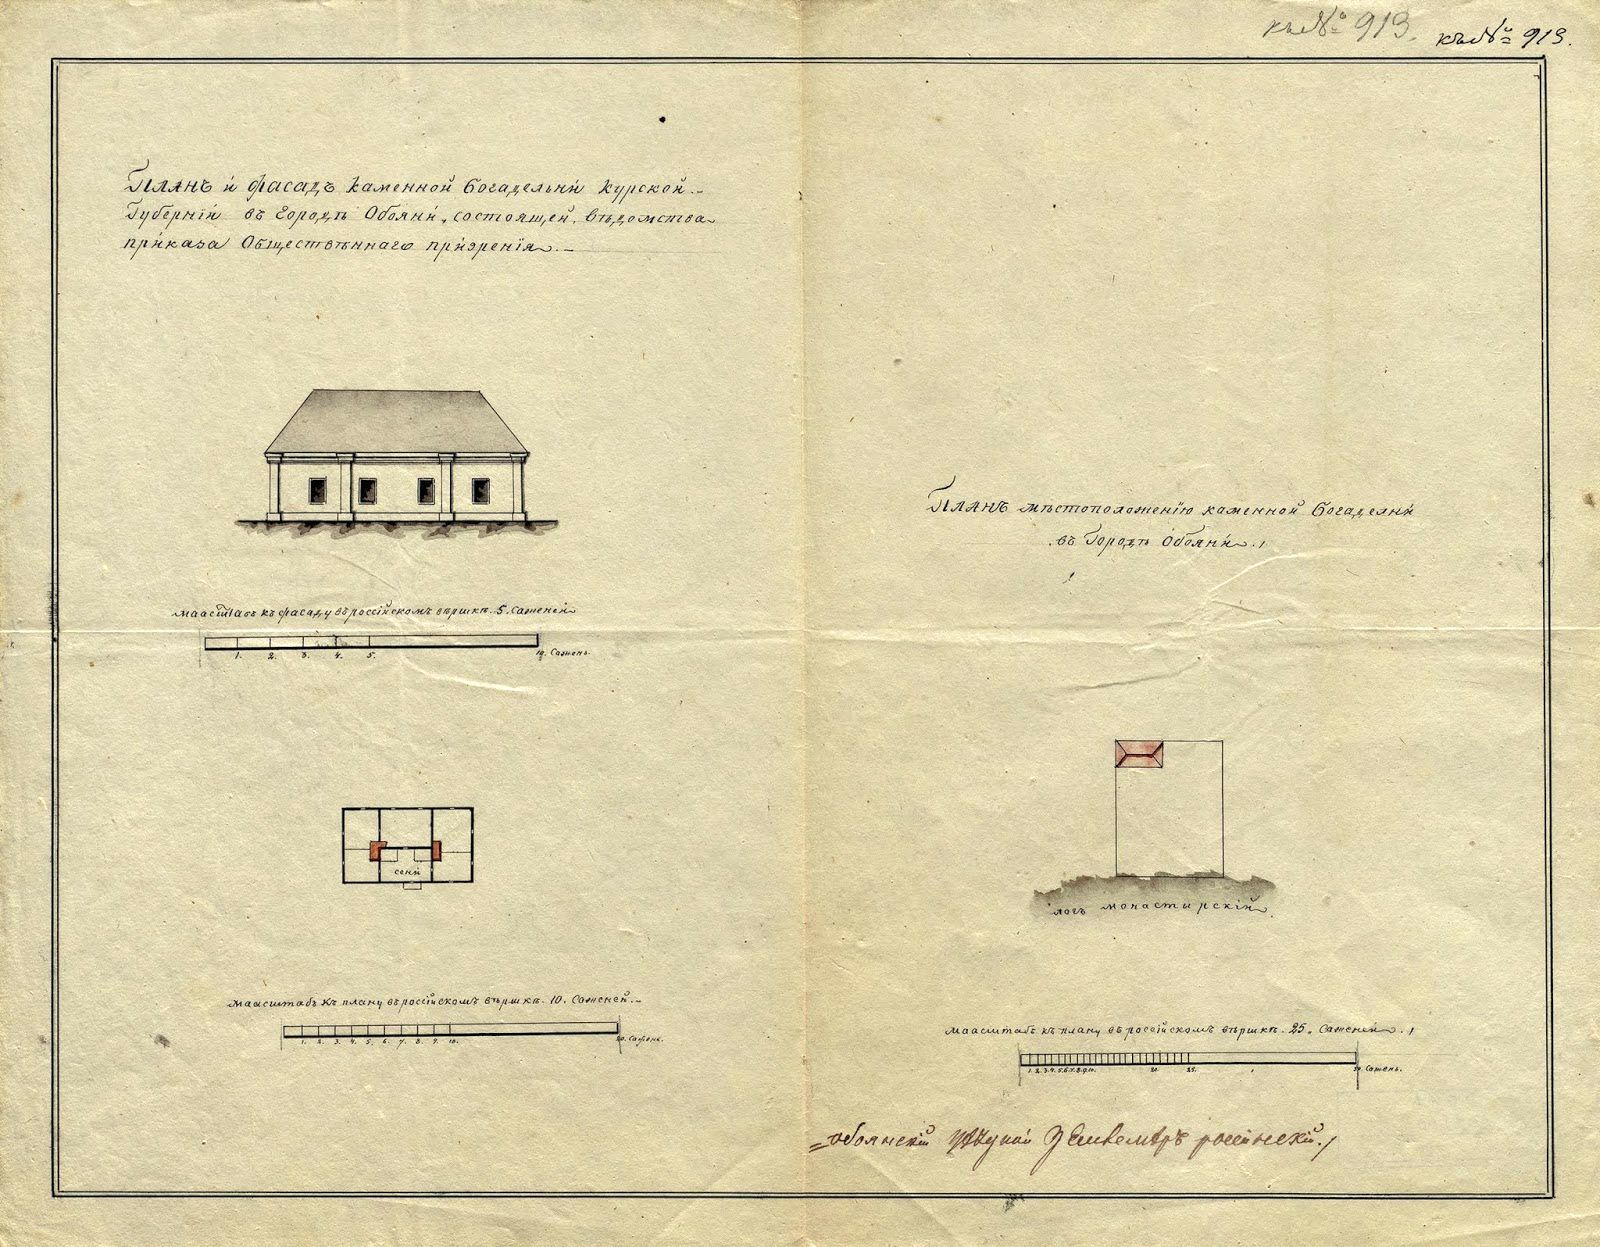 къ № 913.
къ № 913.
Планъ и фасадъ каменной богадельни Курской
Губернии въ городѣ Обояни, состоящей, вѣдомства
приказа Общественнаго призрения.
Маасштабъ къ фасаду въ россійскомъ вѣршкѣ. 5. Саженей
1. 2. 3. 4. 5. 10. Сажень.
сени
Маасштабъ къ плану въ россійскомъ вѣршкѣ. 10. Саженей.
1. 2. 3. 4. 5. 6. 7. 8. 9. 10. 20. Сажень.
Планъ мѣстоположенію каменной богаделни
въ Городѣ Обояни.
логъ монастырскій
Маасштабъ къ плану въ россійскомъ вѣршкѣ. 25. Саженей.
1. 2. 3. 4. 5. 6. 7. 8. 9. 10. 20. 25. 50. Сажень.
обоянскій уѣздной Землемѣръ